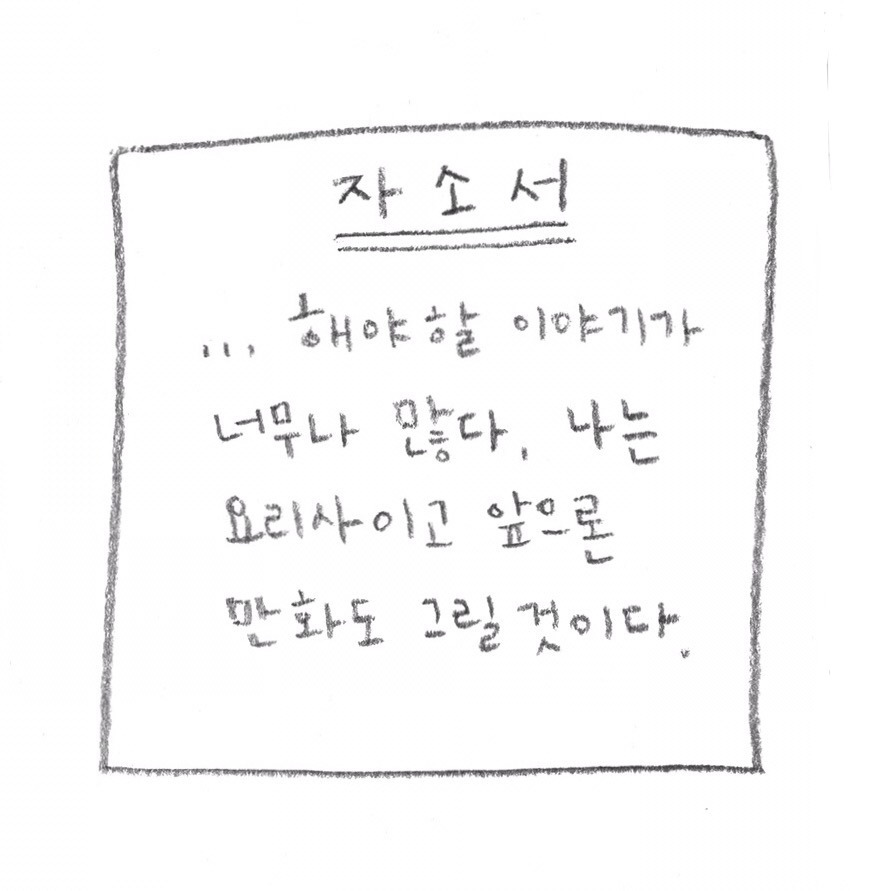 자소서
... 해야할 이야기가
너무나 많다, 나는
요리사이고 앞으론
만화도 그릴것이다.